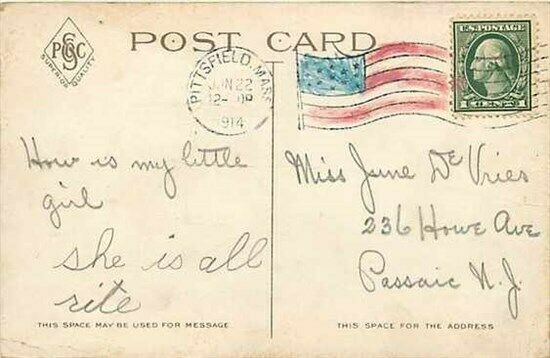 POST CARD
PSGC
SUPERIOR QUALITY
PITTSFIELD, MASS
JUN 22
12-30P
1914
U.S. POSTAGE
1 CENT 1
How is my little
girl
she is all
rite
Miss June DeVries
236 Howe Ave
Passaic N.J.
THIS SPACE MAY BE USED FOR MESSAGE
THIS SPACE FOR THE ADDRESS